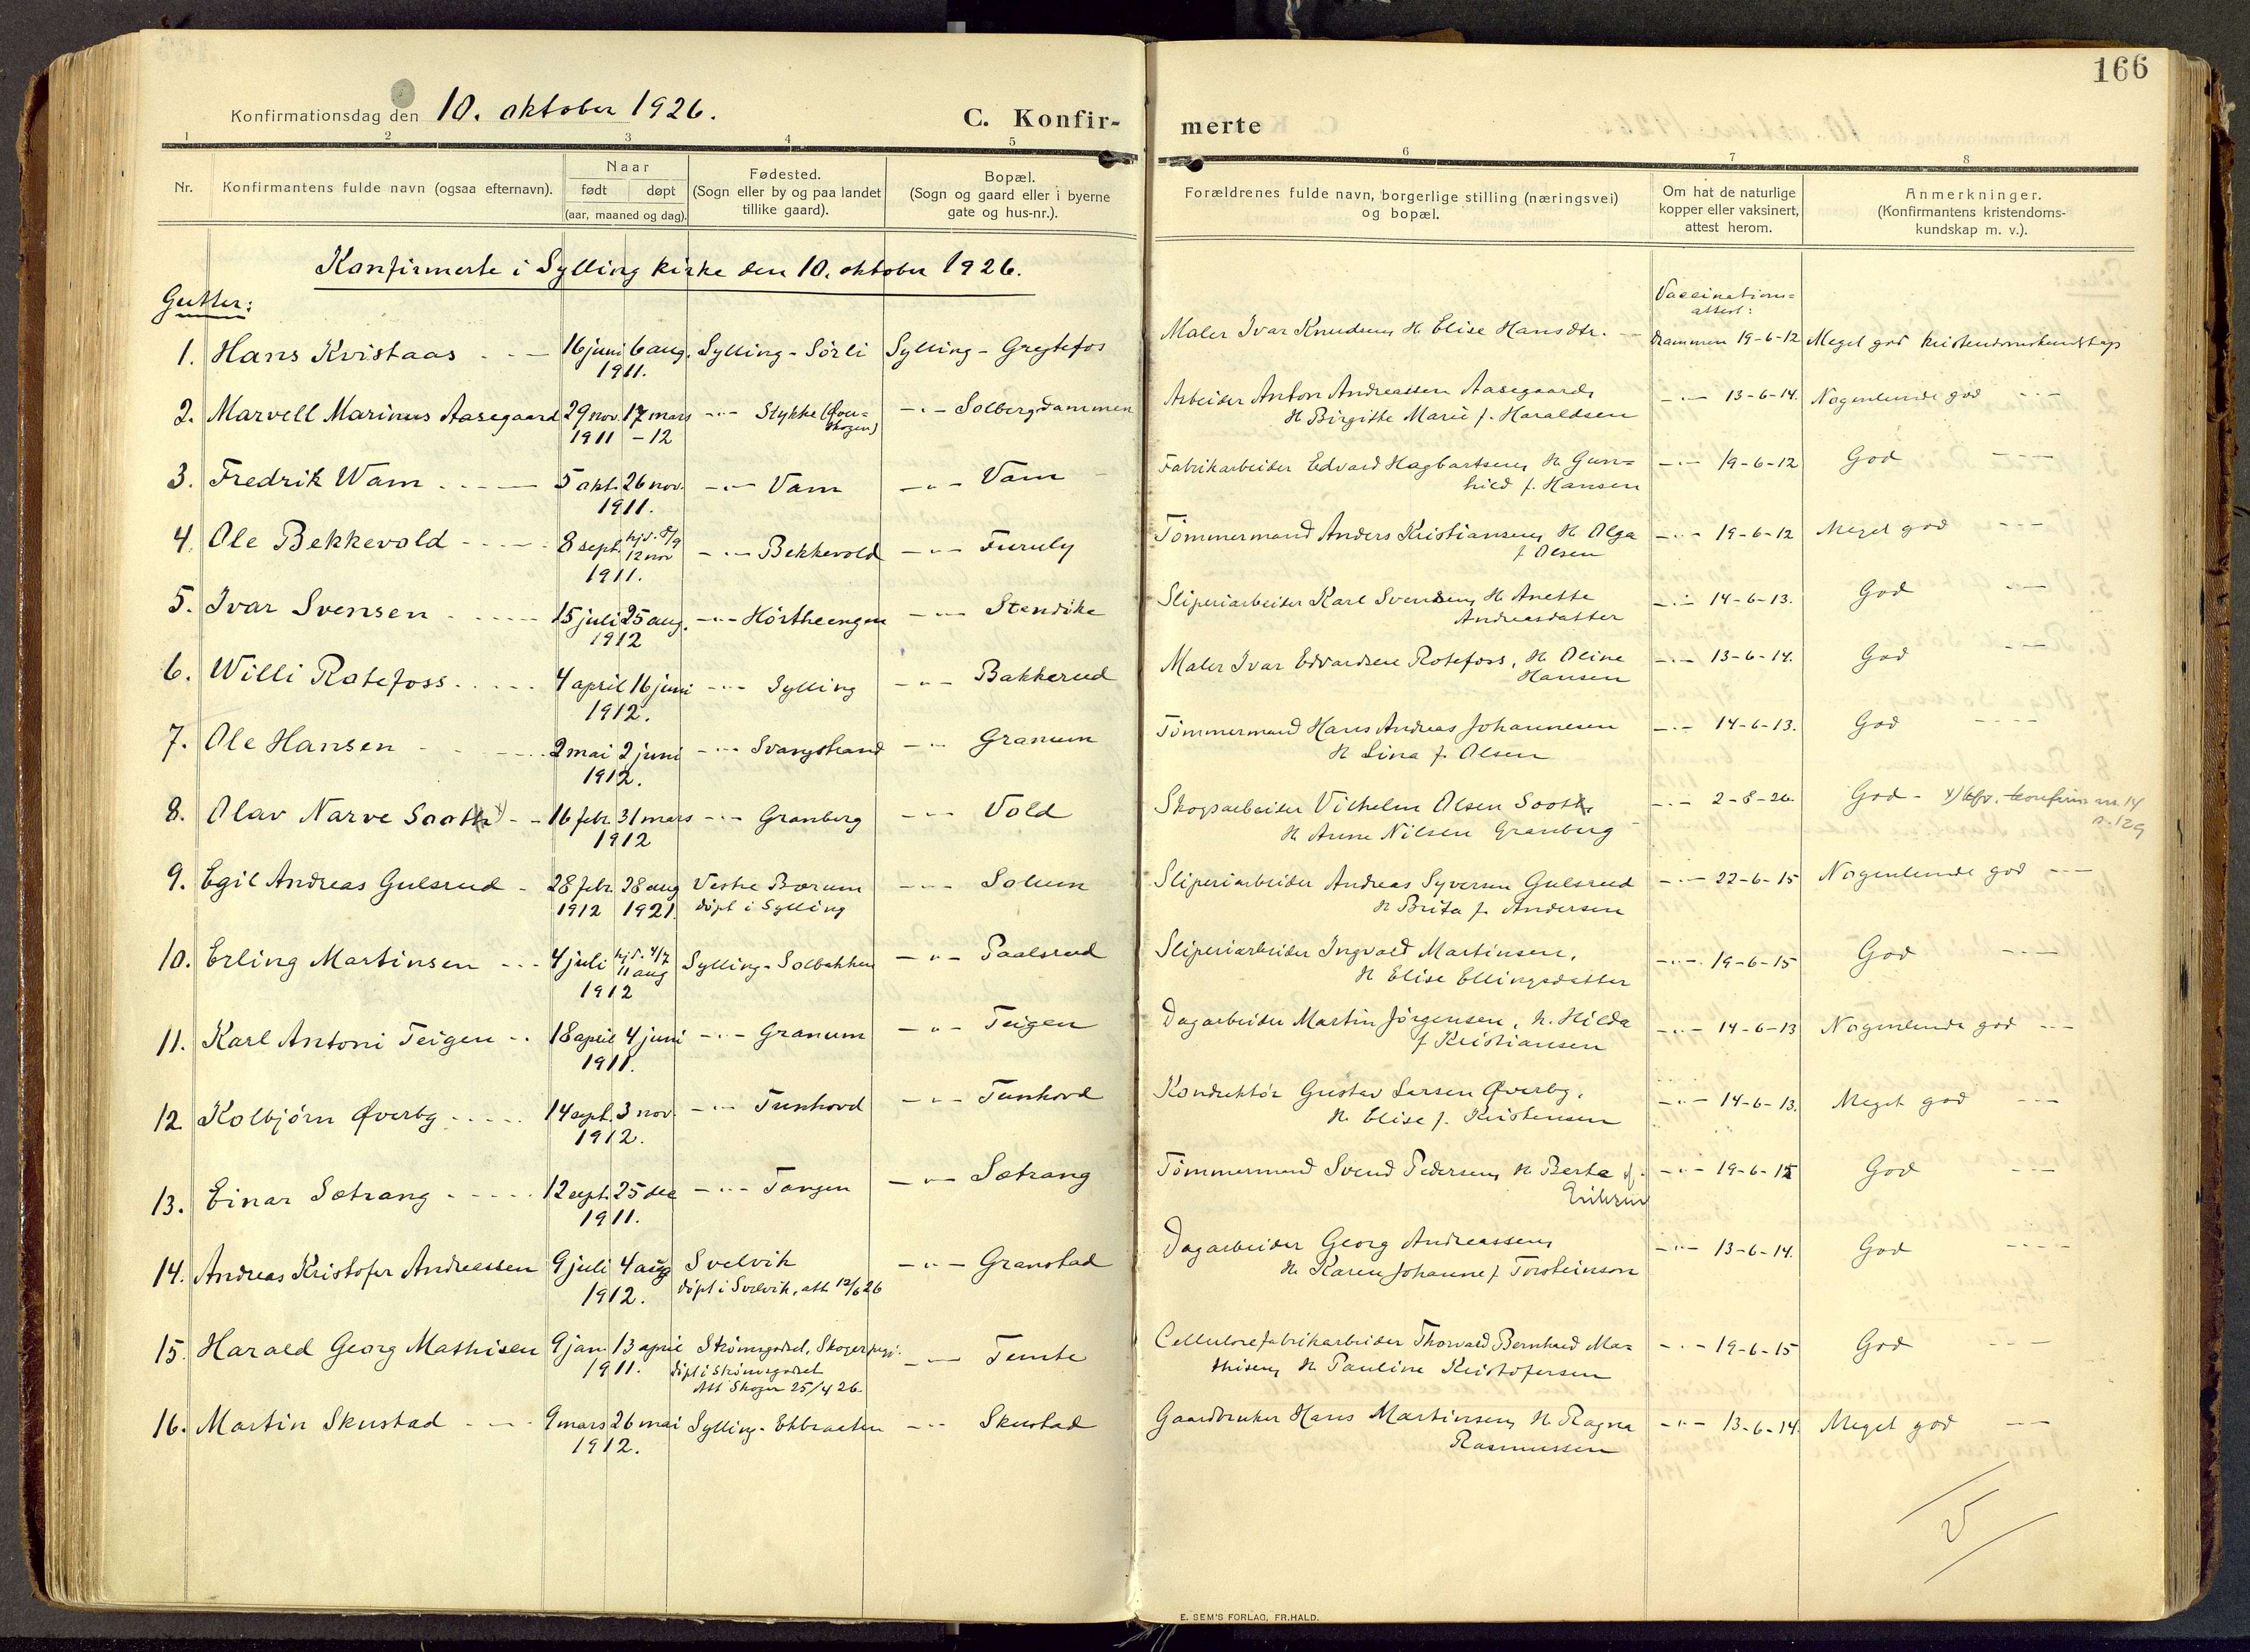 166
Konfirmationsdag den 10. oktober 1926.
C. Konfir-
merte
1 2 3 4 5 6 7 8
Nr.
Konfirmantens fulde navn (ogsaa efternavn).
Naar
født døpt
(aar, maaned og dag).
Fødested.
(Sogn eller by og paa landet
tillike gaard).
Bopæl.
(Sogn og gaard eller i byerne
gate og hus-nr.).
Forældrenes fulde navn, borgerlige stilling (næringsvei)
og bopæl.
Om hat de naturlige
kopper eller vaksinert,
attest herom.
Anmerkninger.
(Konfirmantens kristendoms-
kundskap m. v.).
Konfirmerte i Sylling kirke den 10. oktober 1926.
Gutter:
Vaccinations=
attest:
1. Hans Kvistaas 16 juni 6 aug. Sylling - Sørli Sylling - Grøtefos Maler Ivar Knudsen, H. Elise Hansdtr. Drammen 19-6-12 Meget god kristendomskundskap
1911.
2. Marvell Marinus Aasegaard 29 nov. 17 mars -"- Stykke -"- Solbergdammen Arbeider Anton Andreassen Aasegaard, -"- 13-6-14. Nogenlunde god -"-
1911 -12 skogen) H. Birgitte Marie f. Haraldsen
3. Fredrik Wam 5 okt. 26 nov. -"- Vam -"- Vam Fabrikarbeider Edvard Hagbartsen, H. Gun= -"- 19-6-12 God -"-
1911. hild f. Hansen
4. Ole Bekkevold 8 sept. hjd. 8/9 12 nov -"- Bekkevold -"- Furuly Tømmermand Anders Kristiansen, H. Olga -"- 19-6-12 Meget god -"-
1911. f. Olsen
5. Ivar Svensen 15 juli 25 aug. -"- Hørtheengen -"- Stendike Sliperiarbeider Karl Svendsen, H. Anette -"- 14-6-13. God -"-
1912 Andreasdatter
6. Willi Rotefoss 4 april 16 juni -"- Sylling -"- Bakkerud Maler Ivar Edvardsen Rotefoss, H. Oline -"- 13-6-14. God -"-
1912. Hansen
7. Ole Hansen 2 mai 2 juni -"- Svangstrand -"- Granum Tømmermand Hans Andreas Johannesen -"- 14-6-13. God -"-
1912. H. Lina f. Olsen
8. Olav Narve x) 16 febr. 31 mars -"- Granberg -"- Vold Skogsarbeider Vilhelm Olsen -"- 2-8-26. God - x) konfirm nr. 14
1912 H. Anne Nilsen Granberg s. 129
9. Egil Andreas Gulsrud 28 febr. 28 aug Vestre Bærum -"- Solum Sliperiarbeider Andreas Syversen Gulsrud -"- 22-6-15 Nogenlunde god -"-
1912 1921. døpt i Sylling H. Brita f. Andersen
10. Erling Martinsen 4 juli hjd. 4/7 11 aug Sylling - Solbakken -"- Paalsrud Sliperiarbeider Ingvald Martinsen, -"- 19-6-15 God -"-
1912 H. Elise Ellingsdatter
11. Karl Antoni Teigen 18 april 4 juni -"- Granum -"- Teigen Dagarbeider Martin Jørgensen, h. Hilda -"- 14-6-13 Nogenlunde god -"-
1911. f Kristiansen
12 Kolbjørn Øverby 14 sept. 3 nov. -"- Tunhovd -"- Tunhovd Konduktør Gustav Larsen Øverby, -"- 14-6-13. Meget god -"-
1912. H. Elise f. Kristensen
13. Einar Sætrang 12 sept. 25 des -"- Tangen -"- Sætrang Tømmermand Svend Pedersen, H. Berta f. -"- 19-6-12 God -"-
1911. Eriksen
14. Andreas Kristofer Andreassen 9 juli 4 aug Svelvik -"- Granstad Dagarbeider Georg Andreassen, -"- 13-6-14. God -"-
1912. døpt i Svelvik, att 12/6 26 H. Karen Johanne f. Torsteinson
15. Harald Georg Mathisen 9 jan 13 april Strømsgodset, Skoger -"- Temte Cellulosefabrikarbeider Thorvald Bernhard Ma= -"- 19-6-15 God -"-
1911. døpt i Strømsgodset thisen, H. Pauline Kristofersen
Att Skoger 25/4 26.
16. Martin Skustad 9 mars 26 mai Sylling - Ekbraaten -"- Skustad Gaardbruker Hans Martinsen, H. Ragna -"- 13-6-14. Meget god -"-
1912. Rasmussen
E. SEM'S FORLAG, FR.HALD.